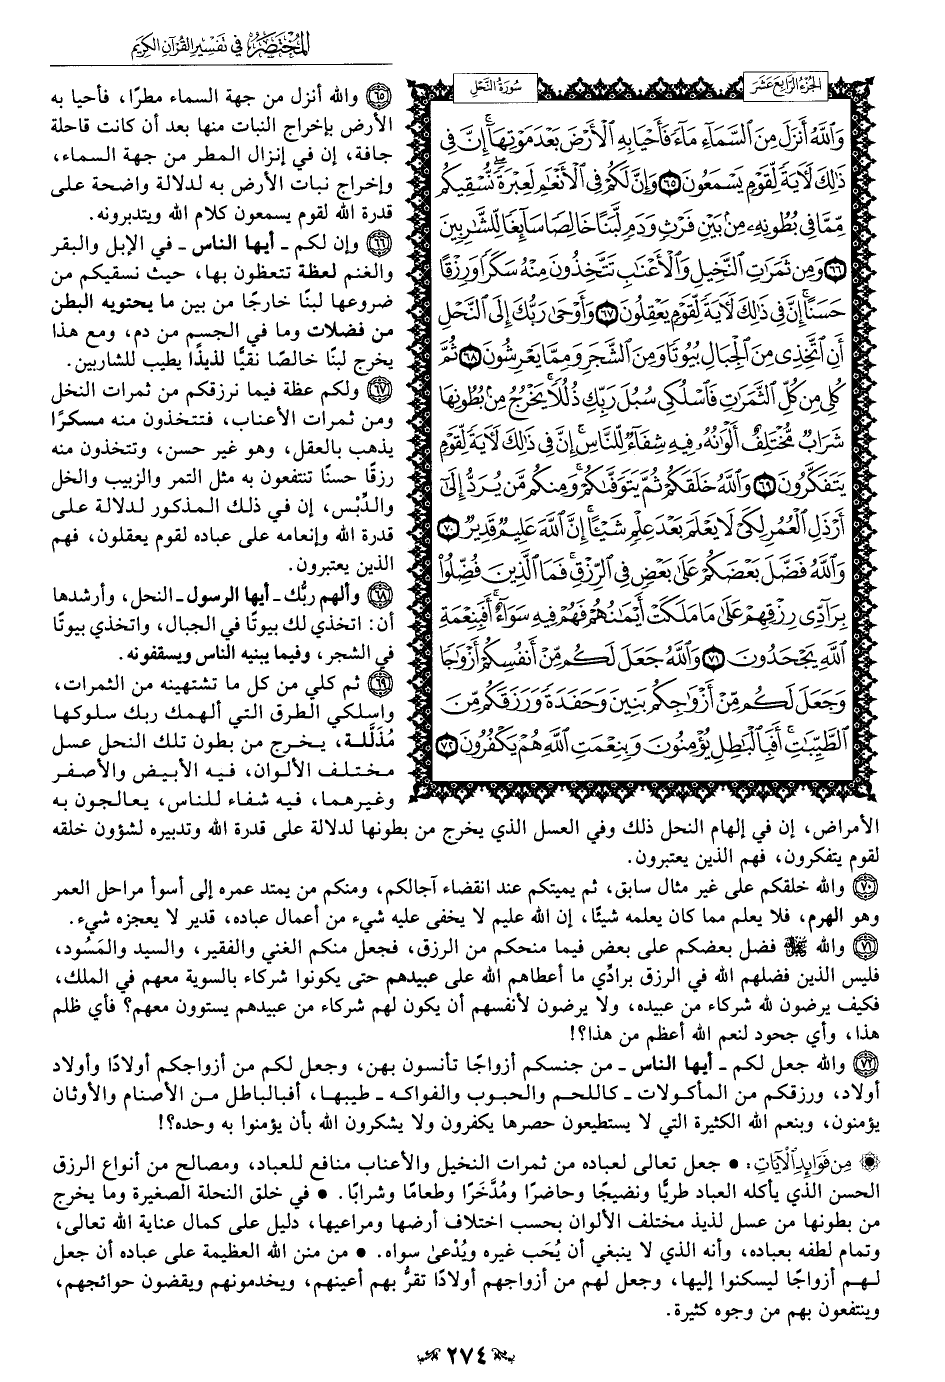 المختصر في تفسير القرآن الكريم
الجزء الرابع عشر
سورة النحل
وَٱللَّهُ أَنزَلَ مِنَ ٱلسَّمَآءِ مَآءً فَأَحْيَا بِهِ ٱلْأَرْضَ بَعْدَ مَوْتِهَآ ۚ إِنَّ فِى
ذَٰلِكَ لَـَٔايَةً لِّقَوْمٍ يَسْمَعُونَ ٦٥ وَإِنَّ لَكُمْ فِى ٱلْأَنْعَٰمِ لَعِبْرَةً ۖ نُّسْقِيكُم
مِّمَّا فِى بُطُونِهِۦ مِنۢ بَيْنِ فَرْثٍ وَدَمٍ لَّبَنًا خَالِصًا سَآئِغًا لِّلشَّٰرِبِينَ
٦٦ وَمِن ثَمَرَٰتِ ٱلنَّخِيلِ وَٱلْأَعْنَٰبِ تَتَّخِذُونَ مِنْهُ سَكَرًا وَرِزْقًا
حَسَنًا ۗ إِنَّ فِى ذَٰلِكَ لَـَٔايَةً لِّقَوْمٍ يَعْقِلُونَ ٦٧ وَأَوْحَىٰ رَبُّكَ إِلَى ٱلنَّحْلِ
أَنِ ٱتَّخِذِى مِنَ ٱلْجِبَالِ بُيُوتًا وَمِنَ ٱلشَّجَرِ وَمِمَّا يَعْرِشُونَ ٦٨ ثُمَّ
كُلِى مِن كُلِّ ٱلثَّمَرَٰتِ فَٱسْلُكِى سُبُلَ رَبِّكِ ذُلُلًا ۚ يَخْرُجُ مِنۢ بُطُونِهَا
شَرَابٌ مُّخْتَلِفٌ أَلْوَٰنُهُۥ فِيهِ شِفَآءٌ لِّلنَّاسِ ۗ إِنَّ فِى ذَٰلِكَ لَـَٔايَةً لِّقَوْمٍ
يَتَفَكَّرُونَ ٦٩ وَٱللَّهُ خَلَقَكُمْ ثُمَّ يَتَوَفَّىٰكُمْ ۚ وَمِنكُم مَّن يُرَدُّ إِلَىٰٓ
أَرْذَلِ ٱلْعُمُرِ لِكَىْ لَا يَعْلَمَ بَعْدَ عِلْمٍ شَيْـًٔا ۚ إِنَّ ٱللَّهَ عَلِيمٌ قَدِيرٌ ٧٠
وَٱللَّهُ فَضَّلَ بَعْضَكُمْ عَلَىٰ بَعْضٍ فِى ٱلرِّزْقِ ۚ فَمَا ٱلَّذِينَ فُضِّلُوا۟
بِرَآدِّى رِزْقِهِمْ عَلَىٰ مَا مَلَكَتْ أَيْمَٰنُهُمْ فَهُمْ فِيهِ سَوَآءٌ ۚ أَفَبِنِعْمَةِ
ٱللَّهِ يَجْحَدُونَ ٧١ وَٱللَّهُ جَعَلَ لَكُم مِّنْ أَنفُسِكُمْ أَزْوَٰجًا
وَجَعَلَ لَكُم مِّنْ أَزْوَٰجِكُم بَنِينَ وَحَفَدَةً وَرَزَقَكُم مِّنَ
ٱلطَّيِّبَٰتِ ۚ أَفَبِٱلْبَٰطِلِ يُؤْمِنُونَ وَبِنِعْمَتِ ٱللَّهِ هُمْ يَكْفُرُونَ ٧٢
٦٥ والله أنزل من جهة السماء مطرًا، فأحيا به
الأرض بإخراج النبات منها بعد أن كانت قاحلة
جافة، إن في إنزال المطر من جهة السماء،
وإخراج نبات الأرض به لدلالة واضحة على
قدرة الله لقوم يسمعون كلام الله ويتدبرونه.
٦٦ وإن لكم ـ أيها الناس ـ في الإبل والبقر
والغنم لعظة تتعظون بها، حيث نسقيكم من
ضروعها لبنًا خارجًا من بين ما يحتويه البطن
من فضلات وما في الجسم من دم، ومع هذا
يخرج لبنًا خالصًا نقيًّا لذيذًا يطيب للشاربين.
٦٧ ولكم عظة فيما نرزقكم من ثمرات النخل
ومن ثمرات الأعناب، فتتخذون منه مسكرًا
يذهب بالعقل، وهو غير حسن، وتتخذون منه
رزقًا حسنًا تنتفعون به مثل التمر والزبيب والخل
والدِّبْس، إن في ذلك المذكور لدلالة على
قدرة الله وإنعامه على عباده لقوم يعقلون، فهم
الذين يعتبرون.
٦٨ وألهم ربُّك ـ أيها الرسول ـ النحل، وأرشدها
أن: اتخذي لك بيوتًا في الجبال، واتخذي بيوتًا
في الشجر، وفيما يبنيه الناس ويسقفونه.
٦٩ ثم كلي من كل ما تشتهينه من الثمرات،
واسلكي الطرق التي ألهمك ربك سلوكها
مُذَلَّلة، يخرج من بطون تلك النحل عسل
مختلف الألوان، فيه الأبيض والأصفر
وغيرهما، فيه شفاء للناس، يعالجون به
الأمراض، إن في إلهام النحل ذلك وفي العسل الذي يخرج من بطونها لدلالة على قدرة الله وتدبيره لشؤون خلقه
لقوم يتفكرون، فهم الذين يعتبرون.
٧٠ والله خلقكم على غير مثال سابق، ثم يميتكم عند انقضاء آجالكم، ومنكم من يمتد عمره إلى أسوأ مراحل العمر
وهو الهرم، فلا يعلم مما كان يعلمه شيئًا، إن الله عليم لا يخفى عليه شيء من أعمال عباده، قدير لا يعجزه شيء.
٧١ والله ﷻ فضل بعضكم على بعض فيما منحكم من الرزق، فجعل منكم الغني والفقير، والسيد والمَسُود،
فليس الذين فضلهم الله في الرزق برادِّي ما أعطاهم الله على عبيدهم حتى يكونوا شركاء بالسوية معهم في الملك،
فكيف يرضون لله شركاء من عبيده، ولا يرضون لأنفسهم أن يكون لهم شركاء من عبيدهم يستوون معهم؟ فأي ظلم
هذا، وأي جحود لنعم الله أعظم من هذا؟!
٧٢ والله جعل لكم ـ أيها الناس ـ من جنسكم أزواجًا تأنسون بهن، وجعل لكم من أزواجكم أولادًا وأولاد
أولاد، ورزقكم من المأكولات ـ كاللحم والحبوب والفواكه ـ طيبها، أفبالباطل من الأصنام والأوثان
يؤمنون، وبنعم الله الكثيرة التي لا يستطيعون حصرها يكفرون ولا يشكرون الله بأن يؤمنوا به وحده؟!
من فوائد الآيات: • جعل تعالى لعباده من ثمرات النخيل والأعناب منافع للعباد، ومصالح من أنواع الرزق
الحسن الذي يأكله العباد طريًّا ونضيجًا وحاضرًا ومُدَّخَرًا وطعامًا وشرابًا. • في خلق النحلة الصغيرة وما يخرج
من بطونها من عسل لذيذ مختلف الألوان بحسب اختلاف أرضها ومراعيها، دليل على كمال عناية الله تعالى،
وتمام لطفه بعباده، وأنه الذي لا ينبغي أن يُحَب غيره ويُدْعىٰ سواه. • من منن الله العظيمة على عباده أن جعل
لهم أزواجًا ليسكنوا إليها، وجعل لهم من أزواجهم أولادًا تقرُّ بهم أعينهم، ويخدمونهم ويقضون حوائجهم،
وينتفعون بهم من وجوه كثيرة.
٢٧٤